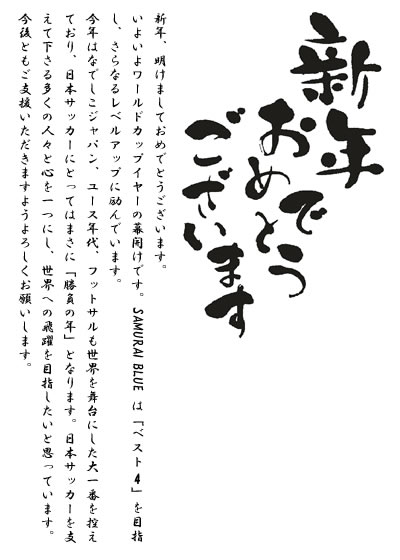 新年
おめでとう
ございます
新年、明けましておめでとうございます。
いよいよワールドカップイヤーの幕開けです。SAMURAI BLUE は「ベスト4」を目指
し、さらなるレベルアップに励んでいます。
今年はなでしこジャパン、ユース年代、フットサルも世界を舞台にした大一番を控え
ており、日本サッカーにとってはまさに「勝負の年」となります。日本サッカーを支
えて下さる多くの人々と心を一つにし、世界への飛躍を目指したいと思っています。
今後ともご支援いただきますようよろしくお願いします。